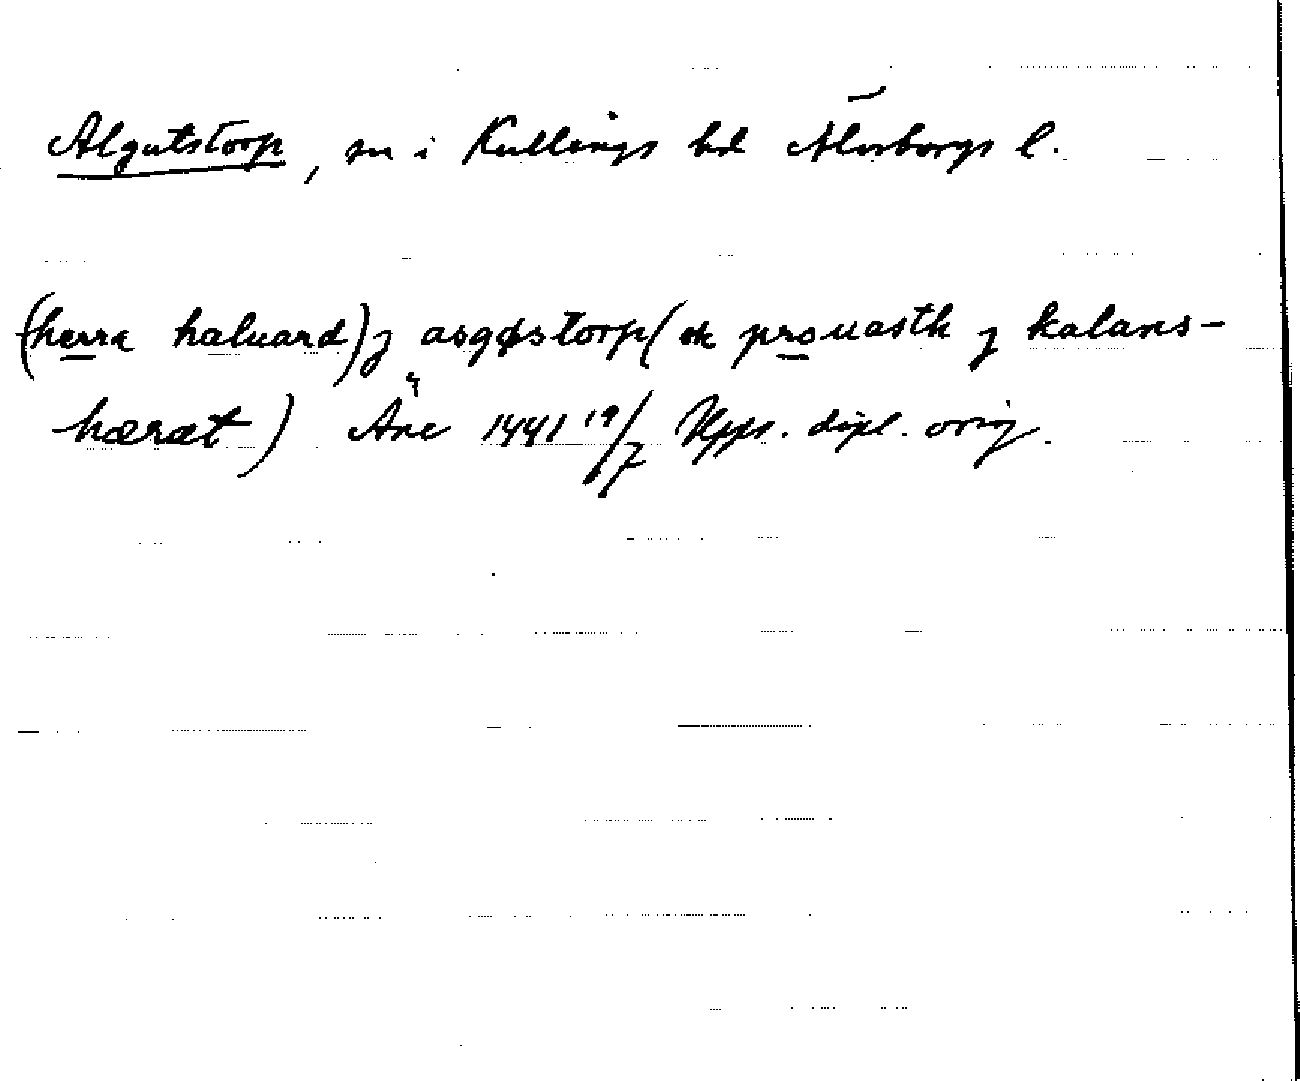 Algutstorp, sn i Kullings hd Älvsborgs l.
(herra haluard) j asgøstorp (ok prouasth j kalans-
hæræt) Äne 1441 19/7 Upps. dipl. orig.